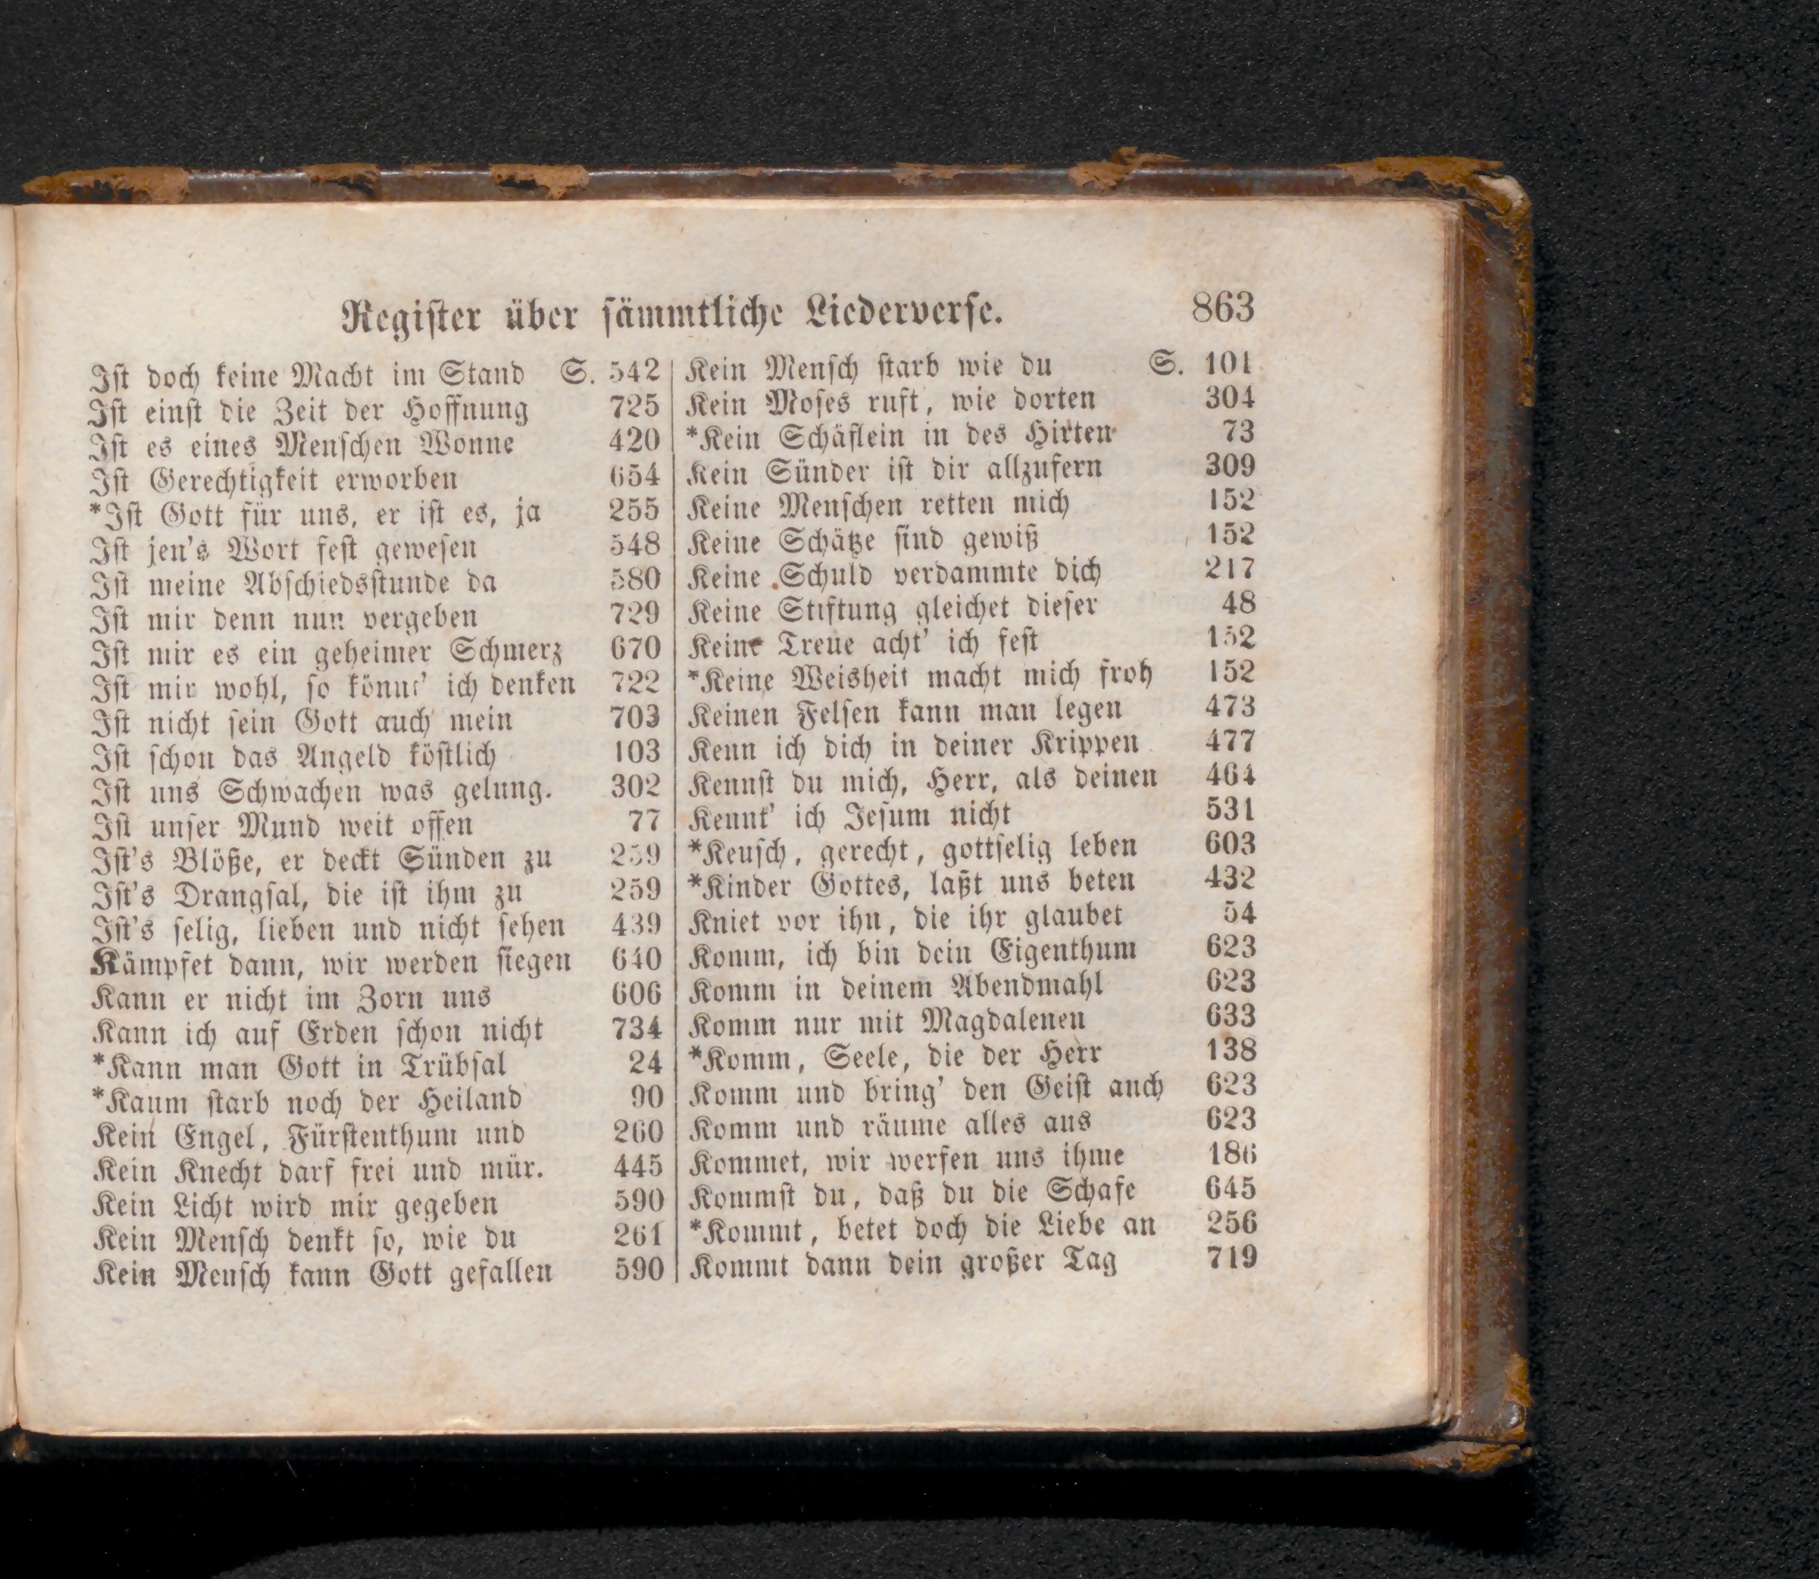 Register über sämmtliche Liederverse. 863
Ist doch keine Macht im Stand S. 542
Ist einst die Zeit der Hoffnung 725
Ist es eines Menschen Wonne 420
Ist Gerechtigkeit erworben 654
*Ist Gott für uns, er ist es, ja 255
Ist jen's Wort fest gewesen 548
Ist meine Abschiedsstunde da 580
Ist mir denn nun vergeben 729
Ist mir es ein geheimer Schmerz 670
Ist mir wohl, so könnt' ich denken 722
Ist nicht sein Gott auch mein 703
Ist schon das Angeld köstlich 103
Ist uns Schwachen was gelung. 302
Ist unser Mund weit offen 77
Ist's Blöße, er deckt Sünden zu 259
Ist's Drangsal, die ist ihm zu 259
Ist's selig, lieben und nicht sehen 439
Kämpfet dann, wir werden siegen 640
Kann er nicht im Zorn uns 606
Kann ich auf Erden schon nicht 734
*Kann man Gott in Trübsal 24
*Kaum starb noch der Heiland 90
Kein Engel, Fürstenthum und 260
Kein Knecht darf frei und mür. 445
Kein Licht wird mir gegeben 590
Kein Mensch denkt so, wie du 261
Kein Mensch kann Gott gefallen 590
Kein Mensch starb wie du S. 101
Kein Moses ruft, wie dorten 304
*Kein Schäflein in des Hirten 73
Kein Sünder ist dir allzufern 309
Keine Menschen retten mich 152
Keine Schätze sind gewiß 152
Keine Schuld verdammte dich 217
Keine Stiftung gleichet dieser 48
Keine Treue acht' ich fest 152
*Keine Weisheit macht mich froh 152
Keinen Felsen kann man legen 473
Kenn ich dich in deiner Krippen 477
Kennst du mich, Herr, als deinen 464
Kennt' ich Jesum nicht 531
*Keusch, gerecht, gottselig leben 603
*Kinder Gottes, laßt uns beten 432
Kniet vor ihn, die ihr glaubet 54
Komm, ich bin dein Eigenthum 623
Komm in deinem Abendmahl 623
Komm nur mit Magdalenen 633
*Komm, Seele, die der Herr 138
Komm und bring' den Geist auch 623
Komm und räume alles aus 623
Kommet, wir werfen uns ihme 186
Kommst du, daß du die Schafe 645
*Kommt, betet doch die Liebe an 256
Kommt dann dein großer Tag 719